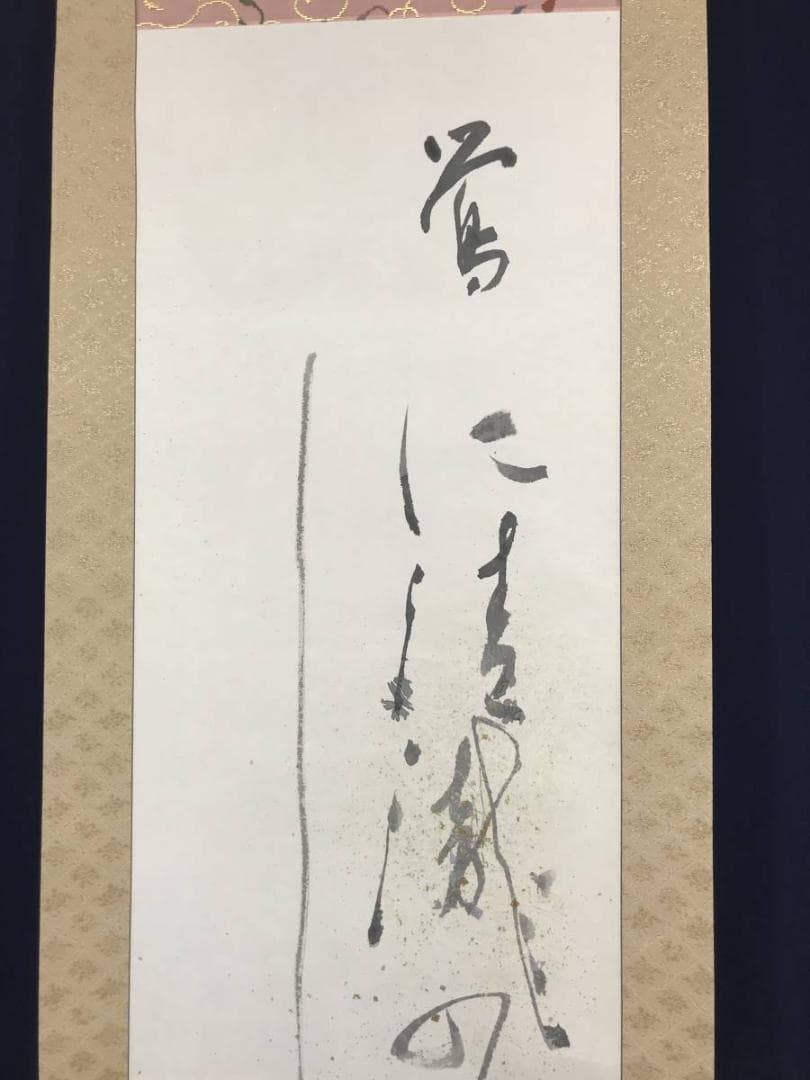 鶯
に清瀧の